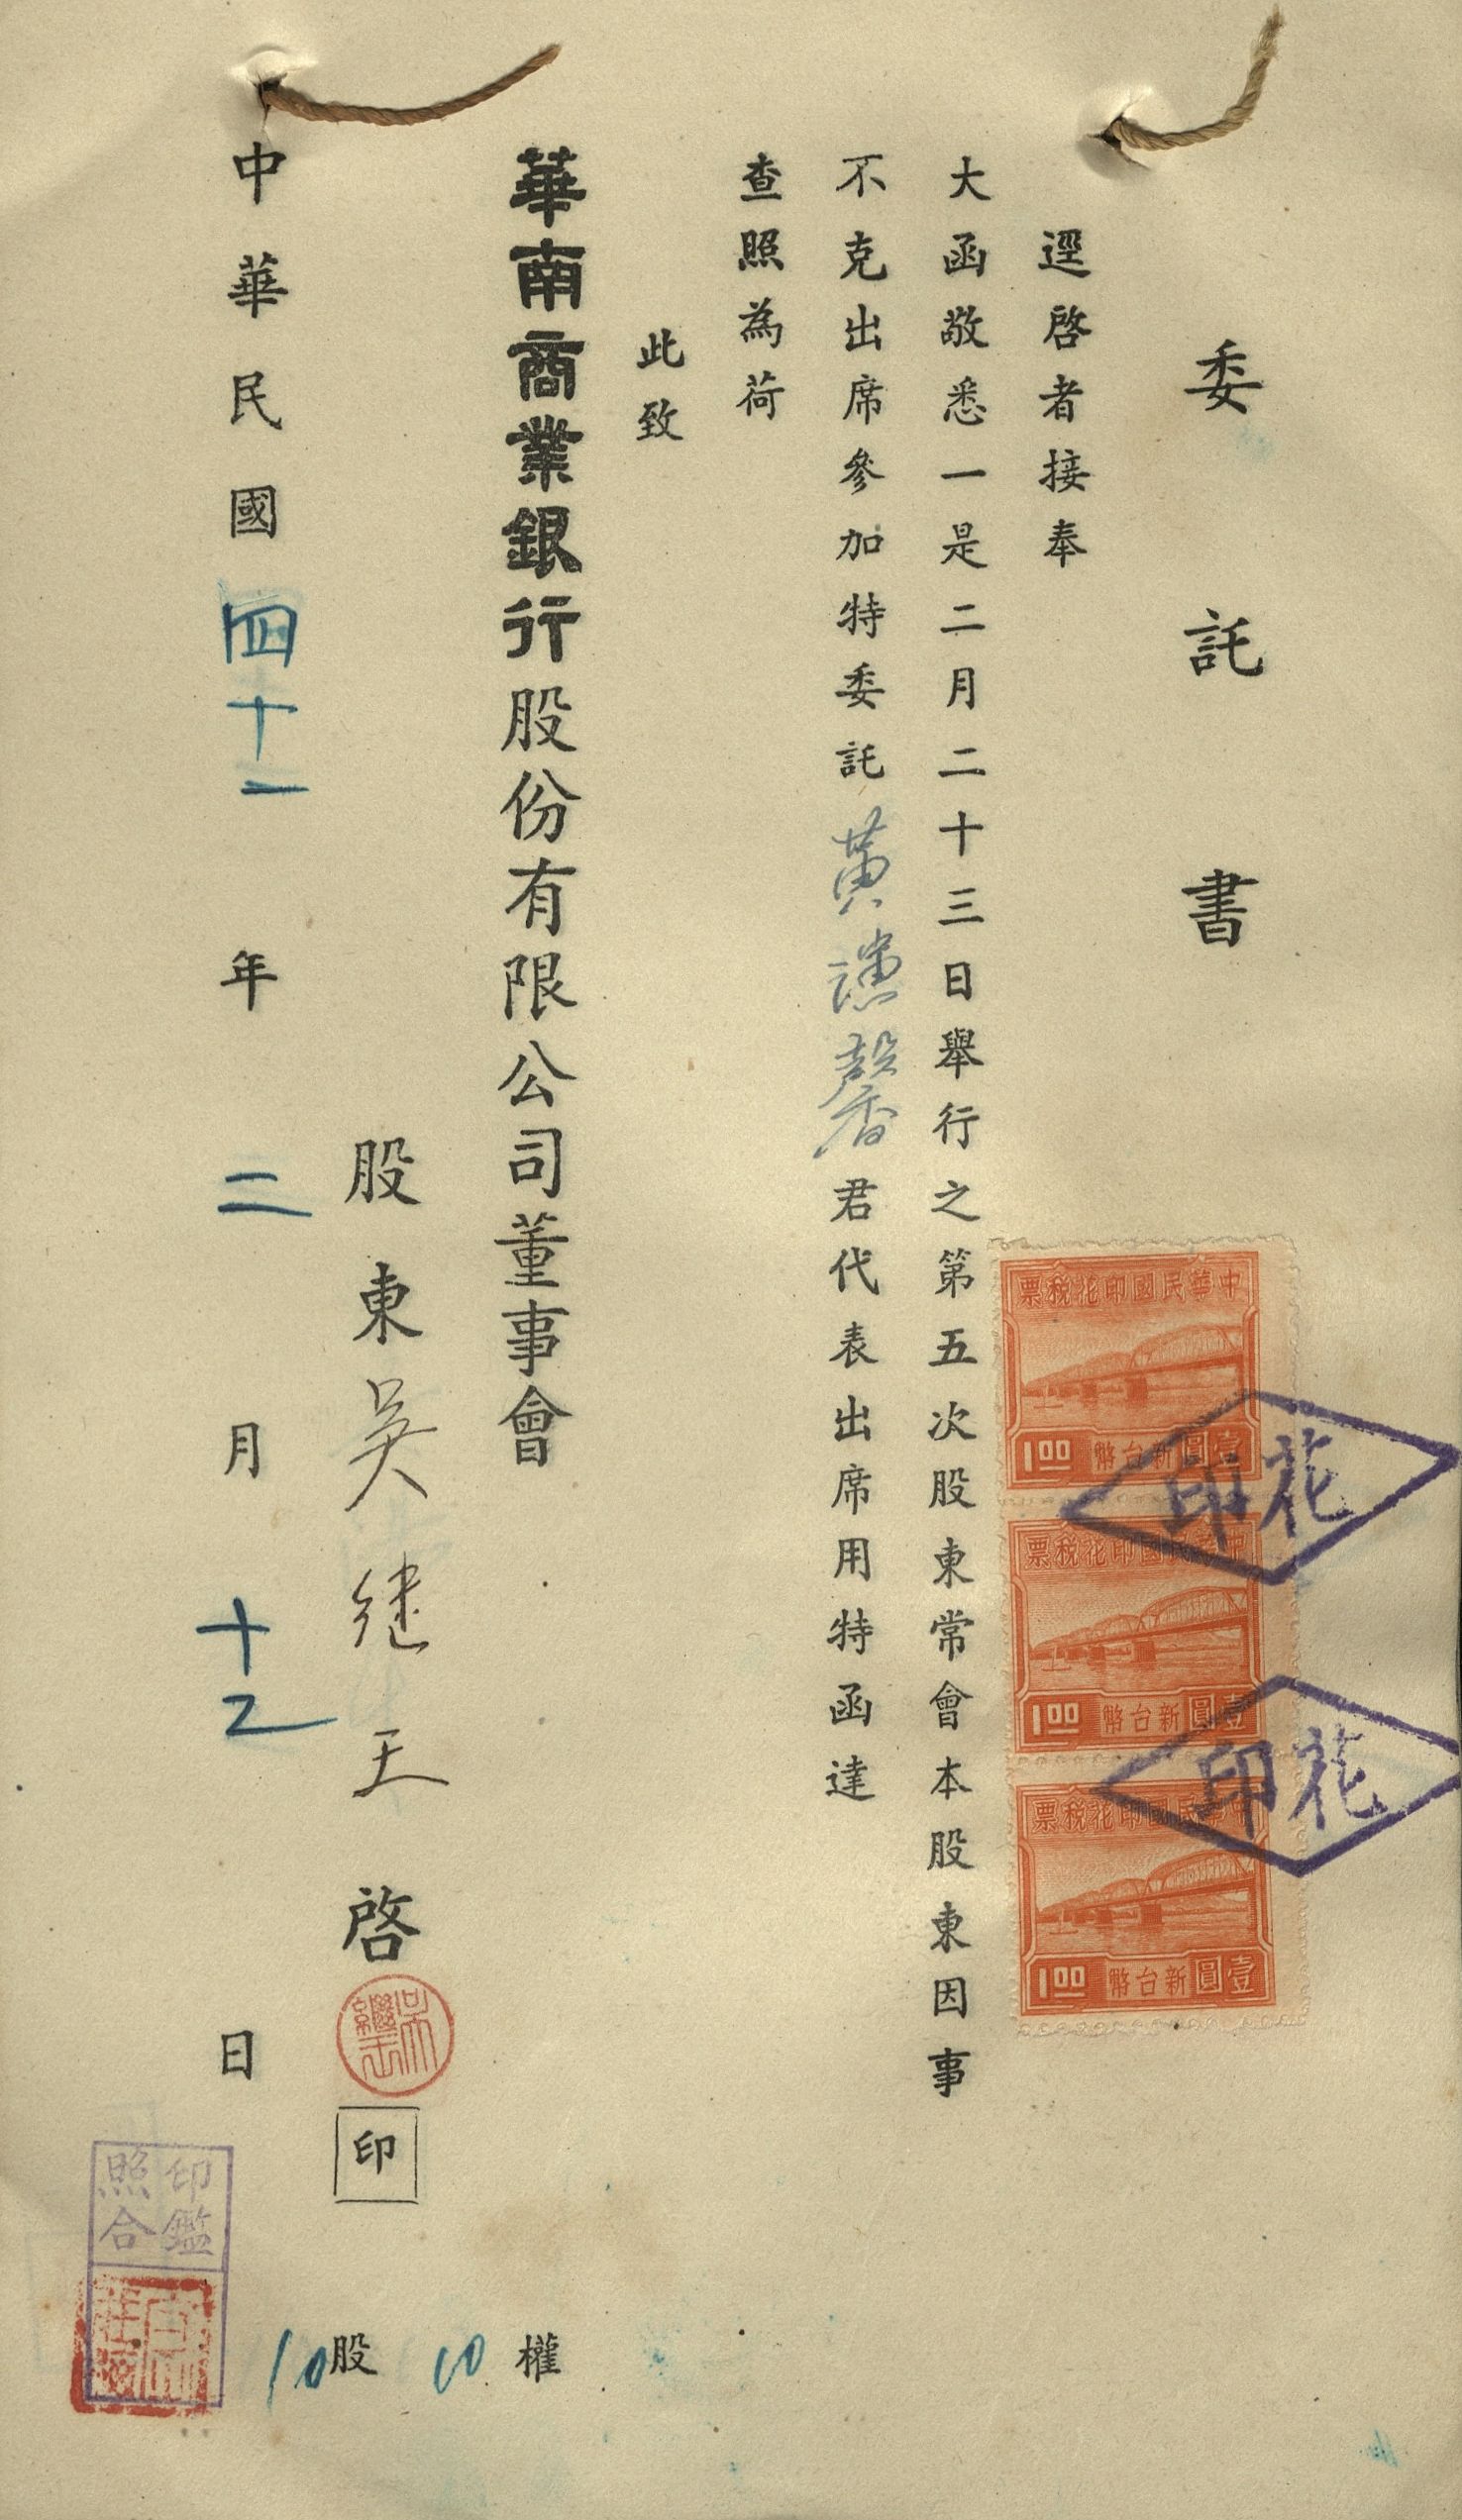 委託書
逕啓者接奉
大函敬悉一是二月二十三日舉行之第五次股東常會本股東因事
不克出席參加特委託黃讜馨君代表出席用特函達
查照為荷
此致
華南商業銀行股份有限公司董事會
股東吳継王啓
吳繼王
印
中華民國四十一年二月十乙日
10股 10權
印鑑
照合
中華民國印花稅票
1.00 新台幣壹圓
花印
中華民國印花稅票
1.00 新台幣壹圓
花印
中華民國印花稅票
1.00 新台幣壹圓